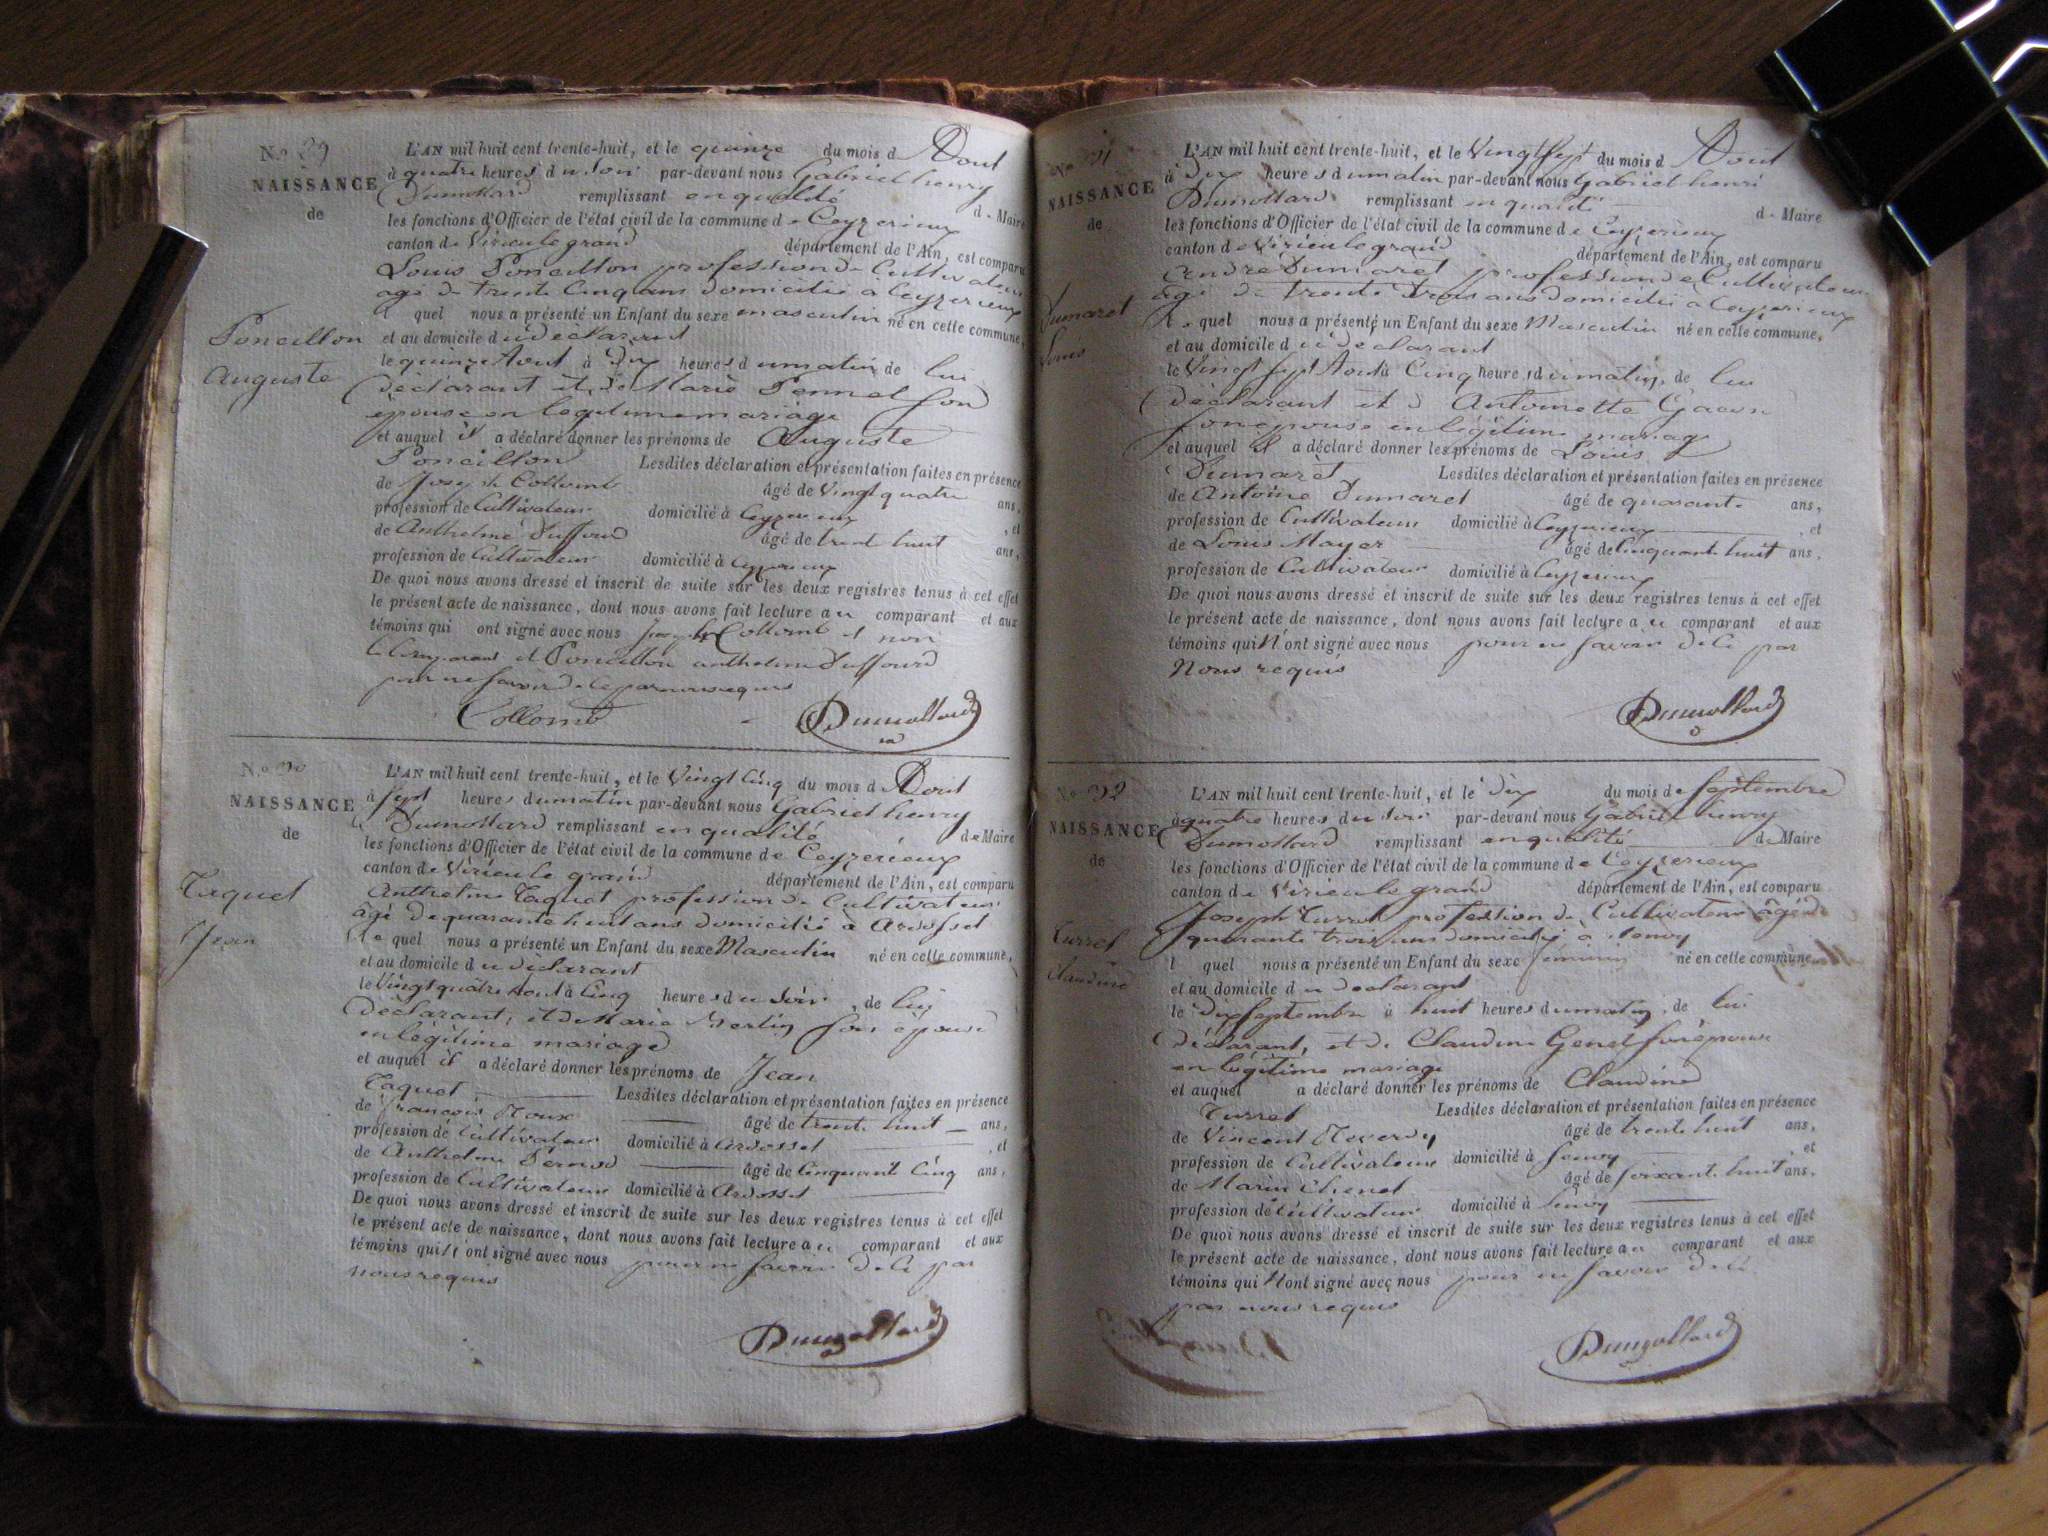 No 29
NAISSANCE
de
Poncillon
Auguste
L'AN mil huit cent trente-huit, et le quinze du mois d Aout
à quatre heures du soir par-devant nous Gabriel henry
Dumollard remplissant en qualité de Maire
les fonctions d'Officier de l'état civil de la commune de Ceyzerieux
canton de Virieu le grand département de l'Ain, est comparu
Louis Poncillon profession de Cultivateur
agé de trente Cinq ans domicilié à Ceyzerieux
l quel nous a présenté un Enfant du sexe masculin né en cette commune,
et au domicile du déclarant
le quinze Aout à dix heures du matin de lui
déclarant et de Marie Pennel son
épouse en legitime mariage
et auquel il a déclaré donner les prénoms de Auguste
Poncillon Lesdites déclaration et présentation faites en présence
de Joseph Collomb âgé de Vingt quatre ans,
profession de Cultivateur domicilié à Ceyzerieux , et
de Anthelme Duffourd âgé de trente huit ans,
profession de Cultivateur domicilié à Ceyzerieux
De quoi nous avons dressé et inscrit de suite sur les deux registres tenus à cet effet
le présent acte de naissance, dont nous avons fait lecture au comparant et aux
témoins qui ont signé avec nous Joseph Collomb et non
le Comparant et Poncillon anthelme Duffourd
pour ne savoir de ce par nous requis
Collomb Dumollard
No 30
NAISSANCE
de
Taquet
Jean
L'AN mil huit cent trente-huit, et le Vingt Cinq du mois d Aout
à sept heures du matin par-devant nous Gabriel henry
Dumollard remplissant en qualité de Maire
les fonctions d'Officier de l'état civil de la commune de Ceyzerieux
canton de Virieu le grand département de l'Ain, est comparu
Anthelme Taquet profession de Cultivateur
âgé de quarante huit ans domicilié à Ardosset
le quel nous a présenté un Enfant du sexe Masculin né en cette commune,
et au domicile du déclarant
le Vingt quatre Aout à Cinq heures du soir, de lui
déclarant, et de Marie Berlin son épouse
en légitime mariage
et auquel il a déclaré donner les prénoms de Jean
Taquet Lesdites déclaration et présentation faites en présence
de françois Roux âgé de trente huit ans,
profession de Cultivateur domicilié à Ardosset , et
de Anthelme Pernod âgé de Cinquante Cinq ans,
profession de Cultivateur domicilié à Ardosset
De quoi nous avons dressé et inscrit de suite sur les deux registres tenus à cet effet
le présent acte de naissance, dont nous avons fait lecture au comparant et aux
témoins qui n'ont signé avec nous pour ne savoir de ce par
nous requis
Dumollard
No 31
NAISSANCE
de
Dumaret
Louis
L'AN mil huit cent trente-huit, et le Vingt sept du mois d Aout
à Dix heures du matin par-devant nous Gabriel henri
Dumollard remplissant en qualité de Maire
les fonctions d'Officier de l'état civil de la commune de Ceyzerieux
canton de Virieu le grand département de l'Ain, est comparu
André Dumaret profession de Cultivateur
âgé de trente trois ans domicilié a Ceyzerieux
le quel nous a présenté un Enfant du sexe Masculin né en cette commune,
et au domicile du déclarant
le Vingt sept Aout à Cinq heures du matin, de lui
déclarant et d Antoinette
son épouse en légitime mariage
et auquel il a déclaré donner les prénoms de Louis
Dumaret Lesdites déclaration et présentation faites en présence
de Antoine Dumaret âgé de quarante ans,
profession de Cultivateur domicilié à Ceyzerieux et
de Louis Mayer âgé de Cinquante huit ans,
profession de Cultivateur domicilié à Ceyzerieux
De quoi nous avons dressé et inscrit de suite sur les deux registres tenus à cet effet
le présent acte de naissance, dont nous avons fait lecture au comparant et aux
témoins qui N'ont signé avec nous pour ne savoir de ce par
Nous requis
Dumollard
No 32
NAISSANCE
de
Turrel
Claudine
L'AN mil huit cent trente-huit, et le dix du mois de Septembre
à quatre heures du soir par-devant nous Gabriel henry
Dumollard remplissant en qualité de Maire
les fonctions d'Officier de l'état civil de la commune de Ceyzerieux
canton de Virieu le grand département de l'Ain, est comparu
Joseph Turrel profession de Cultivateur âgé de
quarante trois ans domicilié à
l quel nous a présenté un Enfant du sexe féminin né en cette commune
et au domicile du declarant
le dix Septembre à huit heures du matin, de lui
déclarant, et de Claudine Genet son épouse
en légitime mariage
et auquel a déclaré donner les prénoms de Claudine
Turrel Lesdites déclaration et présentation faites en présence
de Vincent Reverdy âgé de trente huit ans,
profession de Cultivateur domicilié à , et
de Marin Chenel âgé de soixante huit ans.
profession de Cultivateur domicilié à
De quoi nous avons dressé et inscrit de suite sur les deux registres tenus à cet effet
le présent acte de naissance, dont nous avons fait lecture au comparant et aux
témoins qui N'ont signé avec nous pour ne savoir de ce
par nous requis
Dumollard